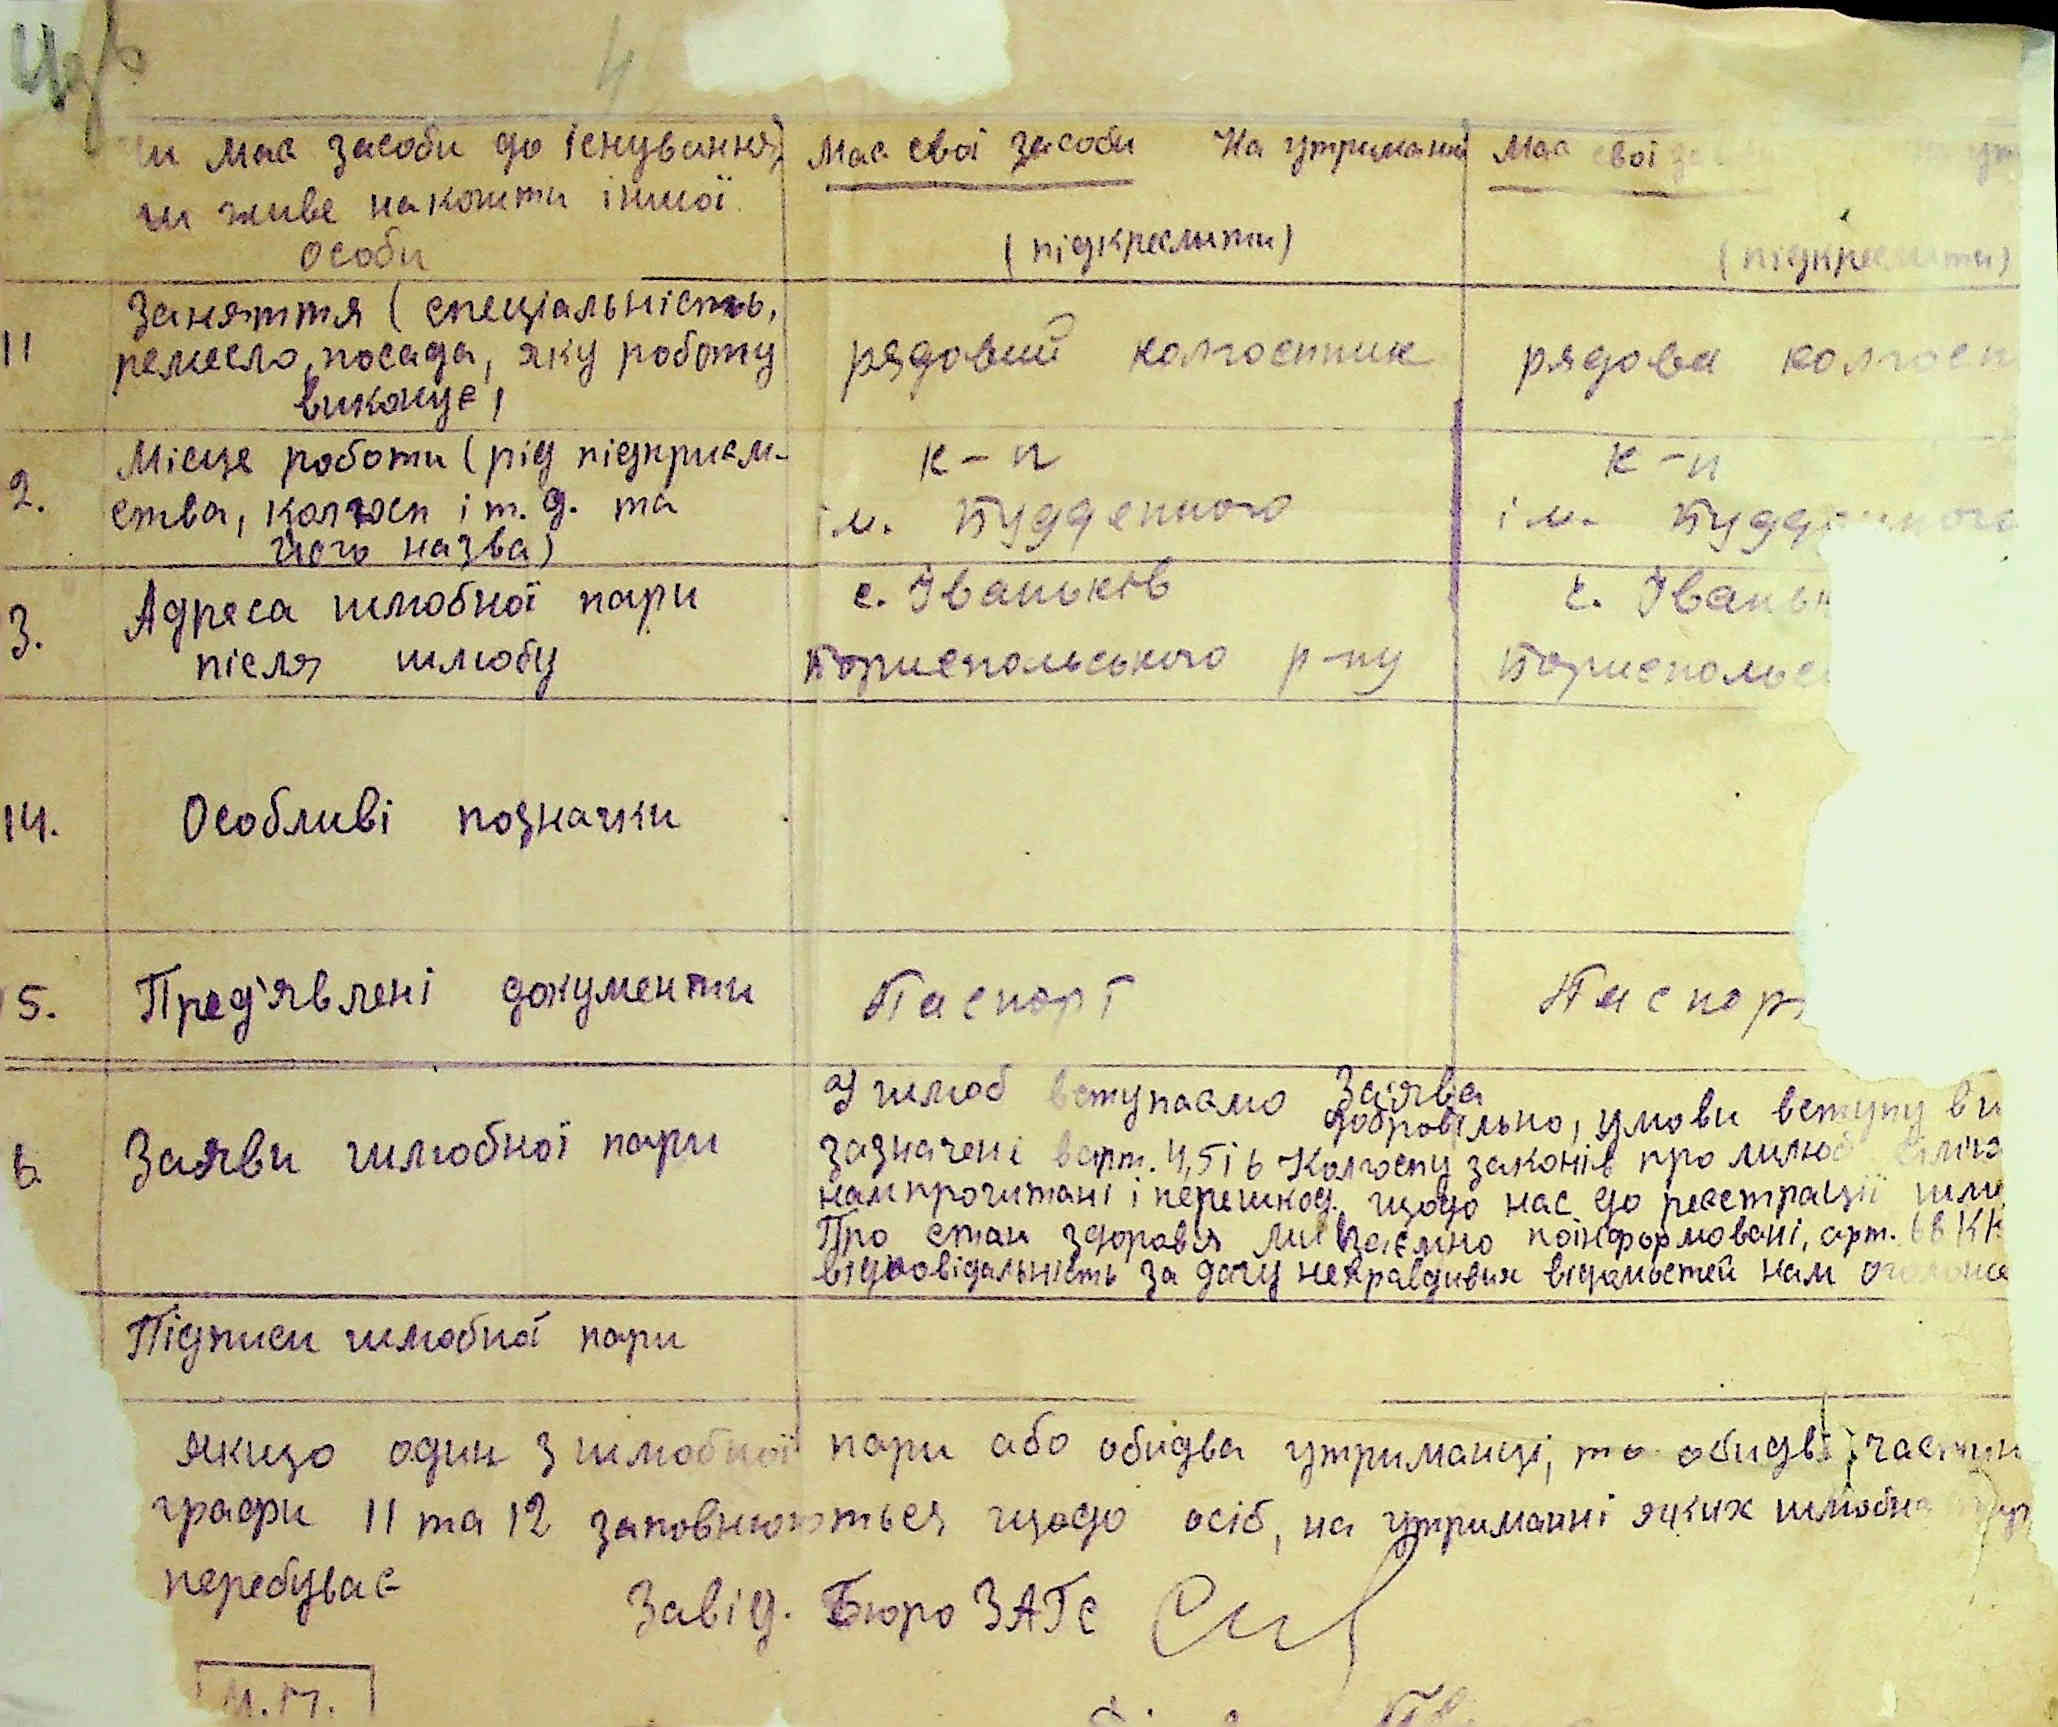 4
має засоби до існування, Має свої засоби На утриманні Має свої
чи живе на кошти іншої
особи (підкреслити) (підкреслити)
11 Заняття (спеціальність, ремесло, посада, яку роботу виконує) рядовий колгоспник рядова колгосп
2. Місце роботи (рід підприєм-
ства, колгосп і т. д. та
його назва) к-п ім. Будденного к-п ім.
3. Адреса шлюбної пари
після шлюбу с. Іваньків Бориспольського р-ну с. Івань Бориспольс
14. Особливі позначки
5. Пред'явлені документи Паспорт Паспор
Заява
6 Заяви шлюбної пари У шлюб вступаємо добровільно, умови вступу
зазначені в арт. 4, 5 і 6 Колгоспу законів про шлюб
нам прочитані і перешкод щодо нас до реєстрації шлю
Про стан здоров'я ми взаємно поінформовані, арт. 68 КК
відповідальність за дачу неправдивих відомостей нам
Підписи шлюбної пари
Якщо один з шлюбної пари або обидва утриманці, то обидві частин
графи 11 та 12 заповнюються щодо осіб, на утриманні яких шлюбна
перебуває
Завід. Бюро ЗАГС
М.П.